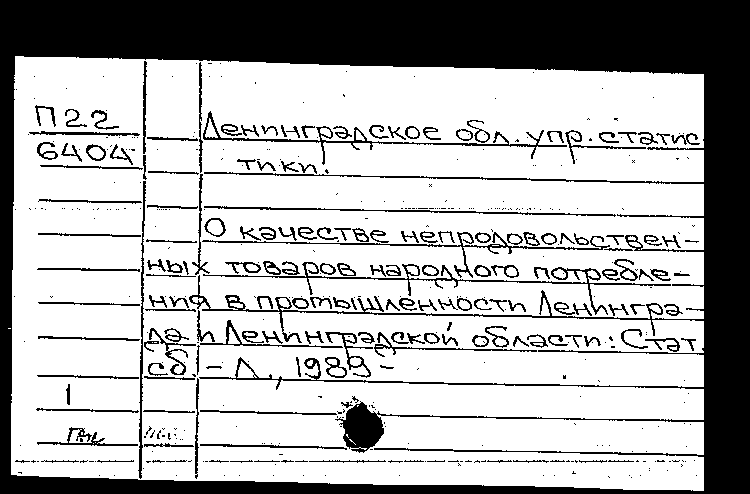 П22
6404
Ленинградское обл. упр. статис
тики.
О качестве непродовольствен-
ных товаров народного потребле-
ния в промышленности Ленингра-
да и Ленинградской области: Стат.
сб. - Л., 1989 -
1